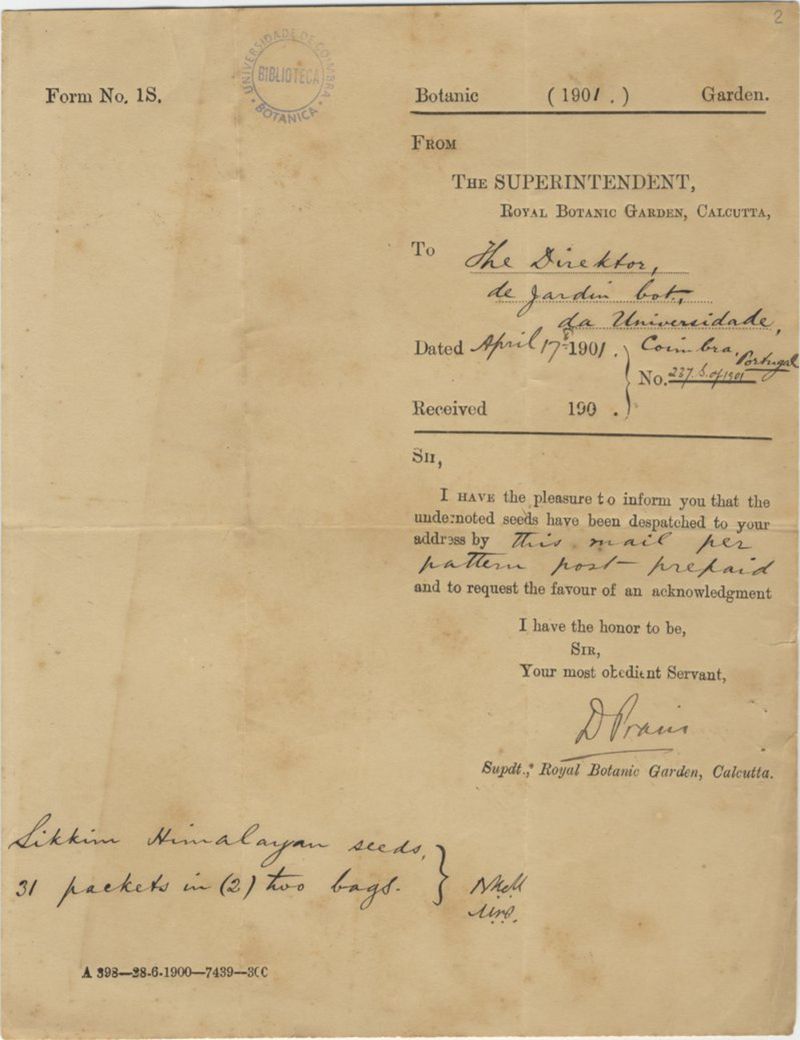 2
UNIVERSIDADE DE COIMBRA
BIBLIOTECA
BOTANICA
Form No. 1S.
Botanic (1901.) Garden.
FROM
THE SUPERINTENDENT,
ROYAL BOTANIC GARDEN, CALCUTTA,
To The Direktor,
de Jardin bot.,
da Universidade,
Dated April 17th 1901. Coimbra, Portugal
No. 227 S. of 1901
Received 190 .
SII,
I HAVE the pleasure to inform you that the
undernoted seeds have been despatched to your
address by this mail per
pattern post prepaid
and to request the favour of an acknowledgment
I have the honor to be,
SIR,
Your most obedient Servant,
D Prain
Supdt., Royal Botanic Garden, Calcutta.
Sikkim Himalayan seeds,
31 packets in (2) two bags.
A 398—28-6-1900—7439—300